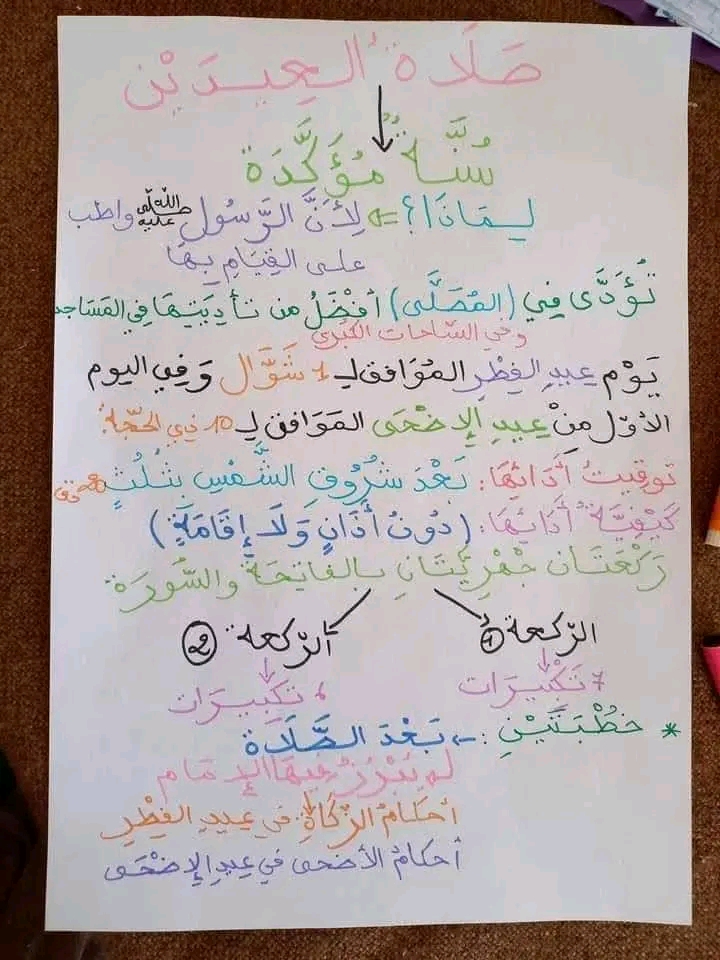 صَلَاةُ العِيدَيْنِ
سُنَّةٌ مُؤَكَّدَة
لِمَاذَا؟ => لِأَنَّ الرَّسُول ﷺ واظب
على القِيَامِ بِهَا
تُؤَدَّى فِي (المُصَلَّى) أَفْضَلُ من تأديَتِهَا فِي المَسَاجد
وفي السّاحات الكُبْرى
يَوْم عِيدِ الفِطْرِ المُوَافِق لِـ 1 شَوَّال وَفِي اليوم
الأوّل مِنْ عِيدِ الإِضْحَى المَوَافق لِـ 10 ذِي الحِجّة.
توقِيتُ أَدَائِهَا: بَعْدَ شُرُوقِ الشَّمْسِ بِثُلُثِ
كَيْفِيَّةُ أَدَائِهَا: (دُونُ أَذَانٍ وَلَا إِقَامَةٍ)
رَكْعَتَان جَهْرِيَّتَانِ بِالفَاتِحَة والسُّورَة
الرّكعة 1 الرّكعة 2
7 تَكْبِيرَات 6 تكبِيرَات
* خُطْبَتَيْنِ: <- بَعْدَ الصَّلَاة
يُبْرِزُ فِيهَا الإِمَام
أحكَامُ الزّكَاةِ في عِيدِ الفِطْرِ
أحكامُ الأضحى في عِيدِ الإِضْحَى